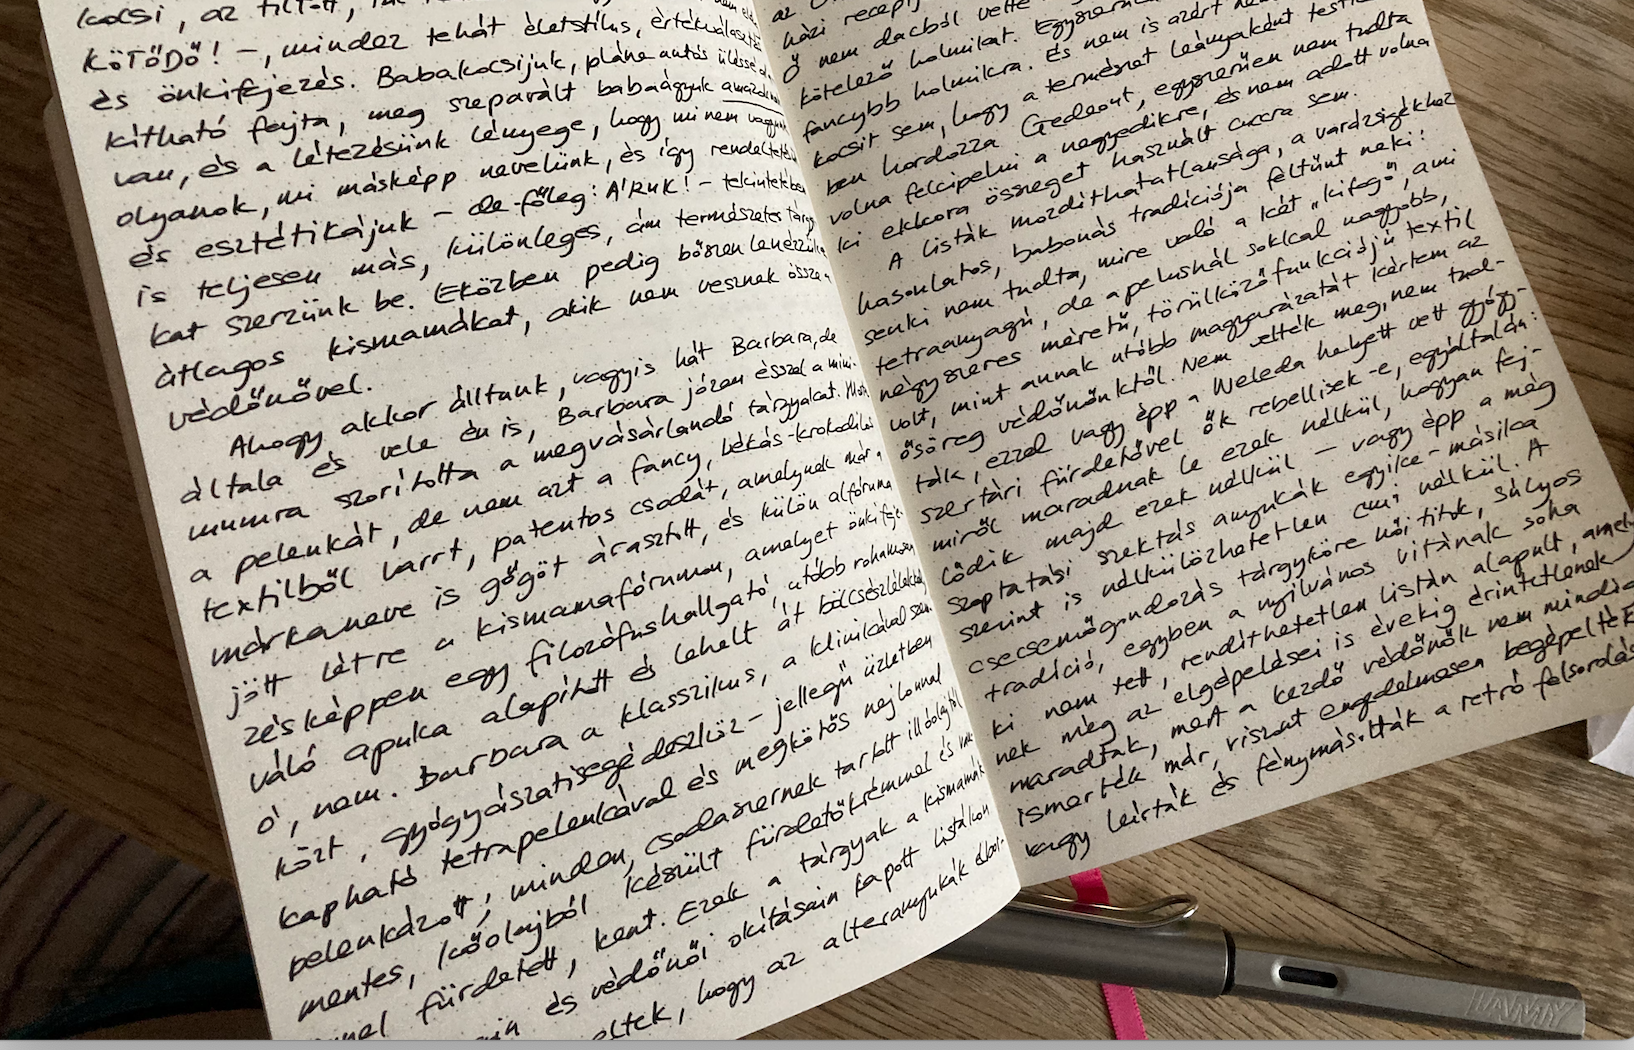 kocsi, az tiltott,
KÖTŐDŐ! –, mindez tehát életstílus, értékválasztás
és önkifejezés. Babakocsijuk, pláne autós üléssé
kítható fajta, meg szeparált babaágyuk
van, és a létezésünk lényege, hogy mi nem vagyunk
olyanok, mi másképp nevelünk, és így rendeltetésük
és esztétikájuk – de főleg: ÁRUK! – tekintetében
is teljesen más, különleges, ám természetes tárgya-
kat szerzünk be. Eközben pedig bőszen lenézzük
átlagos kismamákat, akik nem vesznek össze a
védőnővel.
Ahogy akkor álltunk, vagyis hát Barbara, de
általa és vele én is, Barbara józan ésszel a mini-
mumra szorította a megvásárlandó tárgyakat.
a pelenkát, de nem azt a fancy, békás-krokodilos
textilből varrt, patentos csodát, amelynek már a
márkaneve is gőgöt árasztott, és külön alfóruma
jött létre a kismamafórumon, amelyet önkifeje-
zésképpen egy filozófushallgató, utóbb rohamosan
váló apuka alapított és lehelt át bölcsészlélekkel
ó, nem. Barbara a klasszikus, a klinikával szem-
közt, gyógyászatisegédeszköz-jellegű üzletben
kapható tetrapelenkával és megkötős nejlonnal
pelenkázott; minden, csodaszernek tartott illóolajtól
mentes, kőolajból készült fürdetőkrémmel és
fürdetett, kent. Ezek a tárgyak a kismamák
és védőnői oktatásain kapott listákon
hogy az alteranyukák elbor-
házi
Ő nem dacból vette
kötelező holmikat.
fancybb holmikra. És nem is azért
kocsit sem, hogy a természet leányaként testkö-
ben hordozza Gedeont, egyszerűen nem tudta
volna felcipelni a negyedikre, és nem adott volna
ki ekkora összeget használt cuccra sem.
A listák mozdíthatatlansága, a varázsigékhez
hasonlatos, babonás tradíciója feltűnt neki:
senki nem tudta, mire való a két „kifogó”, ami
tetraanyagú, de a pelusnál sokkal nagyobb,
négyszeres méretű, törülköző funkciójú textil
volt, mint annak utóbb magyarázatát kértem az
ősöreg védőnőnktől. Nem vették meg, nem tud-
ták, ezzel vagy épp a Weleda helyett vett gyógy-
szertári fürdetővel ők rebellisek-e, egyáltalán:
miről maradnak le ezek nélkül, hogyan fej-
lődik majd ezek nélkül – vagy épp a még
szoptatási szektás anyukák egyike-másika
szerint is nélkülözhetetlen ami nélkül. A
csecsemőgondozás tárgyköre női titok, súlyos
tradíció, egyben a nyilvános vitának soha
ki nem tett, rendíthetetlen listán alapult, amely-
nek még az elgépelései is évekig érintetlenek
maradtak, mert a kezdő védőnők nem mindig
ismerték már, viszont engedelmesen begépelték
vagy leírták és fénymásolták a retró felsorolás
LAMY